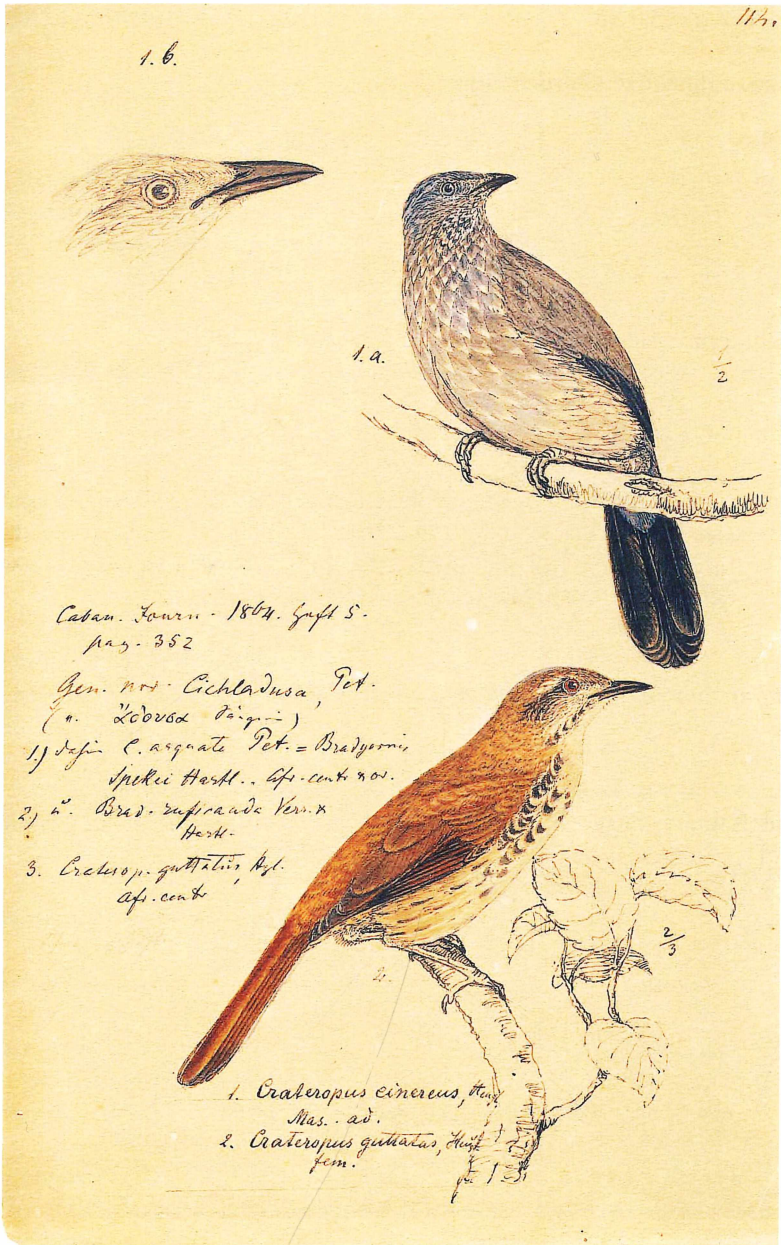 114.
1. b.
1. a.
1/2
Caban. Journ. 1864. Heft 5.
pag. 352
Gen. nov. Cichladusa, Pet.
1.) C. arquata Pet. = Bradyornis
Spekei Hartl.. Afr. centr. or.
2.) Brad. ruficauda Verr. &
Hartl.
3. Craterop. guttatus, Hgl.
Afr. centr
2/3
2.
1. Crateropus cinereus,
Mas. ad.
2. Crateropus guttatus,
fem.